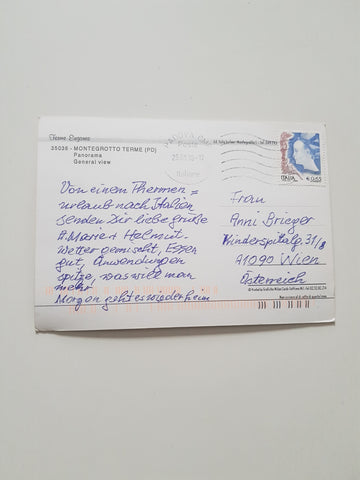 Terme Euganee
35036 - MONTEGROTTO TERME (PD)
Panorama
General view
Poste
Italiane
ITALIA € 0,65
Von einem Thermen=
urlaub nach Italien
senden Dir liebe Grüße
H. Marie + Helmut.
Wetter gemischt, Essen
gut, Anwendungen
spitze, was will man
mehr!
Morgen geht es wieder heim
Frau
Anni Brieger
Kinderspitalg. 31/8
A1090 Wien
Österreich